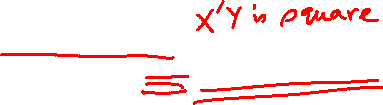 X'Y is square